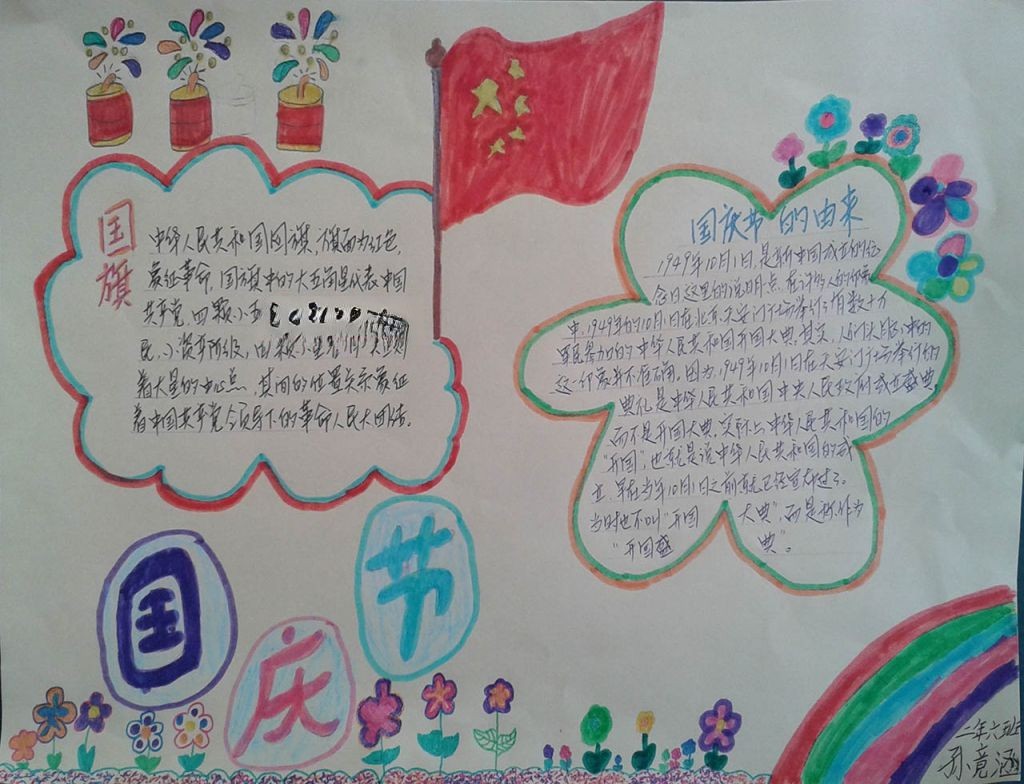 国旗
中华人民共和国国旗,旗面为红色,
象征革命,国旗中的大五角星代表中国
共产党,四颗小五
民、小资产阶级,四颗小星
着大星的中心点,其间的位置关系象征
着中国共产党领导下的革命人民大团结。
国庆节的由来
1949年10月1日,是新中国成立的纪
念日这里的说明点,在许多人的印象
中,1949年的10月1日在北京天安门广场举行了有数十万
军民参加的中华人民共和国开国大典。其实,人们头脑中的
这一印象并不准确。因为,1949年10月1日在天安门广场举行的
典礼是中华人民共和国中央人民政府成立盛典
而不是开国大典。实际上,中华人民共和国的
“开国”,也就是说中华人民共和国的成
立,早在当年10月1日之前就已经宣布过了。
当时也不叫“开国大典”,而是称作为
“开国盛典”。
国庆节
二年六班
孙竟涵